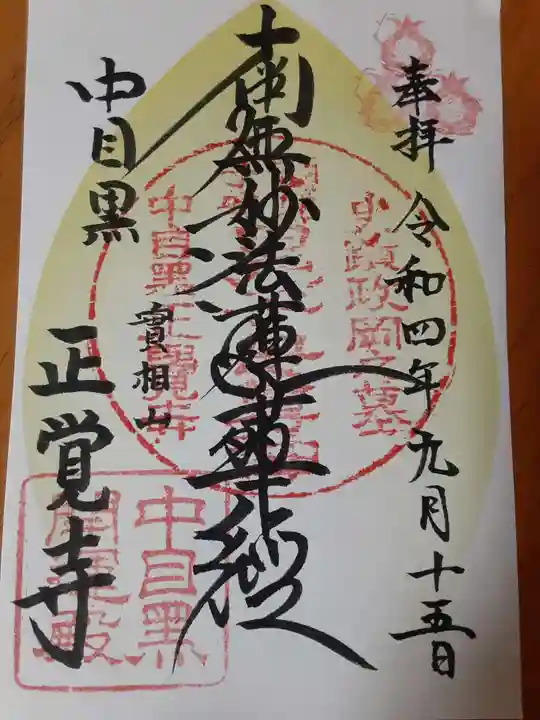 奉拝 令和四年九月十五日
南無妙法蓮華経
實相山
中目黒 正覚寺
中目黒正覺寺
中目黒
開運殿